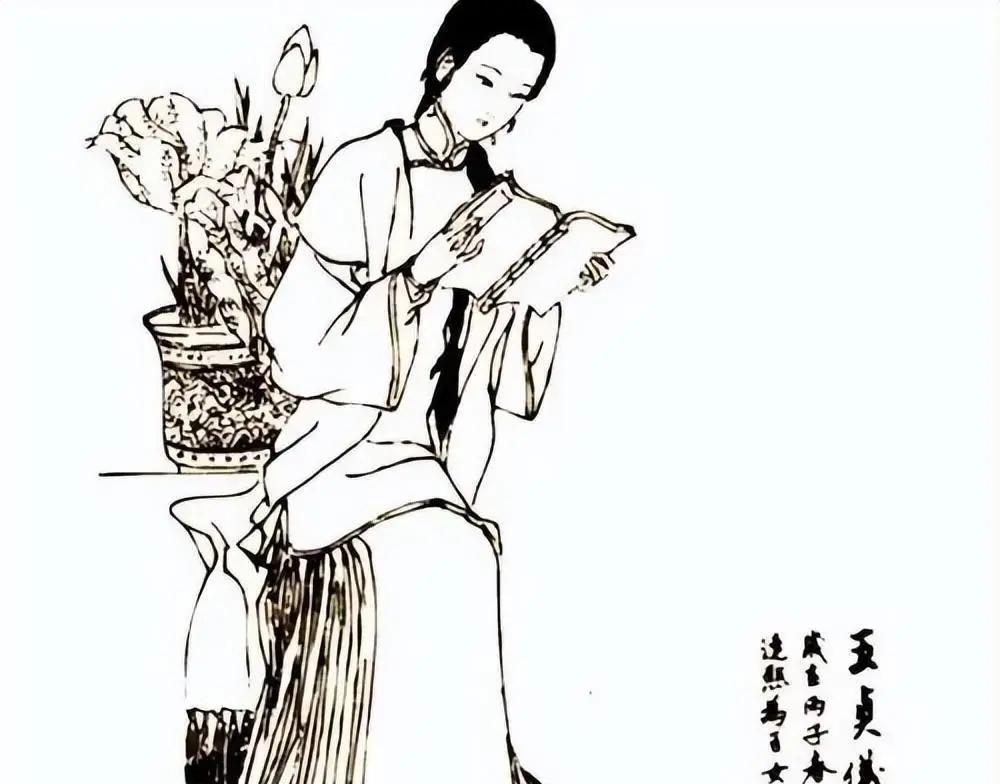 王贞仪
岁在丙子春
达熙为子女